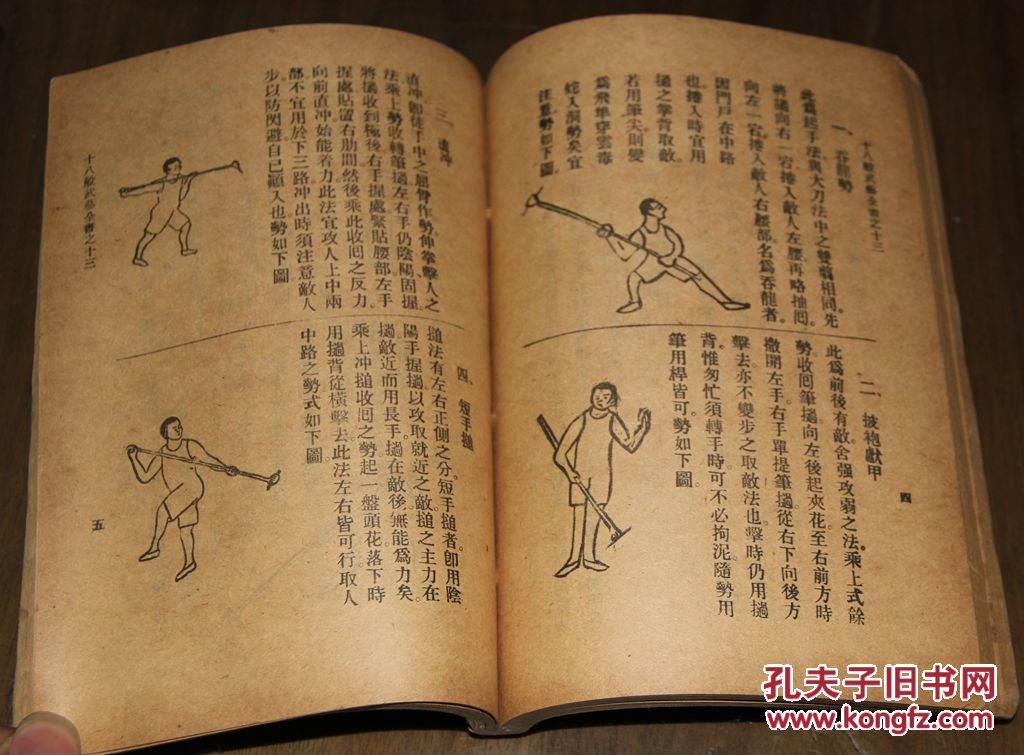 十八般武藝全書之十三
四
一、吞龍勢
此爲起手法與大刀法中之雙翦相同。先
將撾向右一宕捲入敵人左腰再略抽囘。
向左一宕捲入敵人右腰部。名爲吞龍者。
因門戶在中路
也。捲入時宜用
撾之拳背取敵
若用筆尖則變
爲飛隼穿雲毒
蛇入洞勢矣宜
注意勢如下圖。
二、披袍獻甲
此爲前後有敵舍强攻弱之法。乘上式餘
勢收囘筆撾向左後起夾花至右前方時
撒開左手。右手單提筆撾從右下向後方
擊去亦不變步之取敵法也。擊時仍用撾
背。惟匆忙須轉手時可不必拘泥隨勢用
筆用桿皆可。勢如下圖。
三、直冲
直冲卽徒手中之屈臂作勢伸拳擊人之
法。乘上勢收轉筆撾左右手仍陰陽固握。
將撾收到極後右手握處緊貼腰部左手
握處貼置右肋間然後乘此收囘之反力
向前直冲始能着力此法宜攻人上中兩
部不宜用於下三路冲出時須注意敵人
步以防閃避自己顚入也勢如下圖
四、短手撾
撾法有左右正側之分。短手撾者。卽用陰
陽手握撾以攻取就近之敵。撾之主力在
撾敵近而用長手撾在敵後無能爲力矣。
乘上冲撾收囘之勢起一盤頭花落下時
用撾背從橫擊去此法左右皆可行取人
中路之勢式如下圖
十八般武藝全書之十三
五
孔夫子旧书网
www.kongfz.com